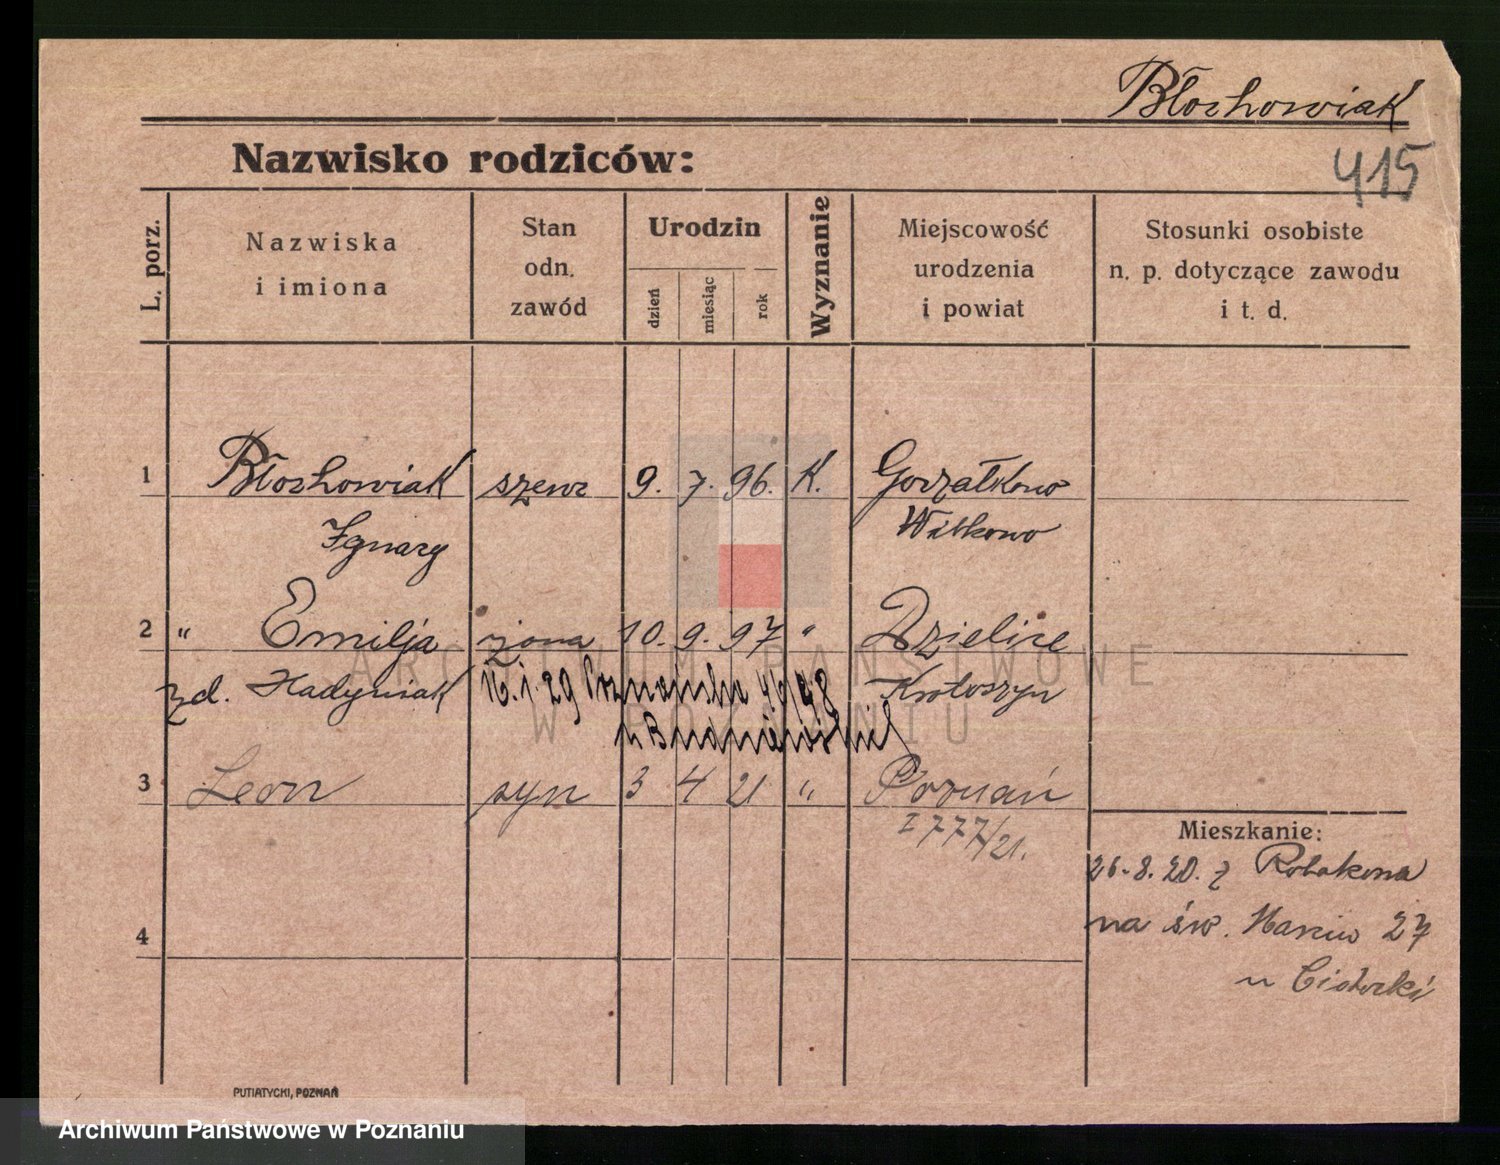 Błochowiak
415
Nazwisko rodziców:
L. porz.
Nazwiska
i imiona
Stan
odn.
zawód
Urodzin
dzień
miesiąc
rok
Wyznanie
Miejscowość
urodzenia
i powiat
Stosunki osobiste
n. p. dotyczące zawodu
i t. d.
1 Błochowiak szewc 9. 7. 96. K. Gorzałkowo
Ignacy Witkowo
2 " Emilja żona 10. 9. 97 " Dzielice
zd. Hadyniak Krotoszyn
16.1.29 Poznańska
3 Leon syn 3 4 21 " Poznań
I 777/21.
4
Mieszkanie:
26.8.20. z Robakowa
na św. Marcin 27
u
ARCHIWUM PAŃSTWOWE
W POZNANIU
PUTIATYCKI, POZNAŃ
Archiwum Państwowe w Poznaniu